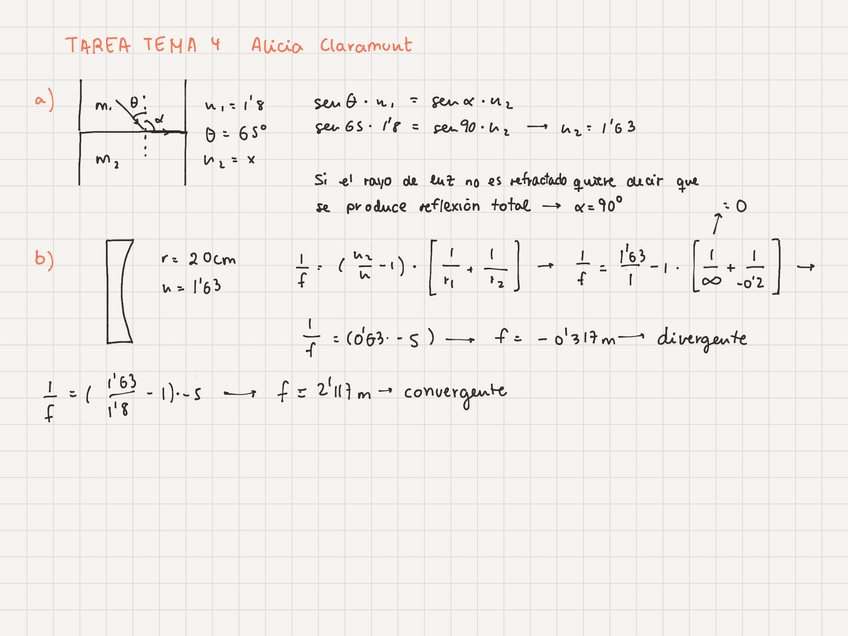 TAREA TEMA 4 Alicia Claramunt
a)
m₁ θ α
m₂
n₁ = 1'8
θ = 65°
n₂ = x
sen θ · n₁ = sen α · n₂
sen 65 · 1'8 = sen 90 · n₂ → n₂ = 1'63
Si el rayo de luz no es refractado quiere decir que
se produce reflexión total → α = 90°
b)
r = 20cm
n = 1'63
1/f = (n₂/n - 1) · [1/r₁ + 1/r₂] → 1/f = 1'63/1 - 1 · [1/∞ + 1/-0'2] →
= 0
1/f = (0'63 · - 5) → f = - 0'317 m → divergente
1/f = (1'63/1'8 - 1) · - 5 → f = 2'117 m → convergente